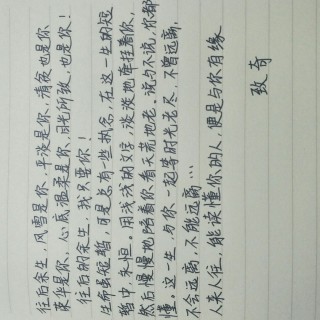 往后余生，风雪是你，平淡是你，清贫也是你
荣华是你，心底温柔是你，目光所致，也是你！
往后的余生，我只要你！
生命虽短暂，可是总有一些执念，在这一生的短
暂中，永恒。用浅浅的文字，淡淡地牵挂着你，
然后慢慢地陪着你看天荒地老。说与不说，你都
懂。这一生，与你一起等时光老尽，不曾远离，
不会远离，不能远离…
人来人往，能读懂你的人，便是与你有缘
致奇